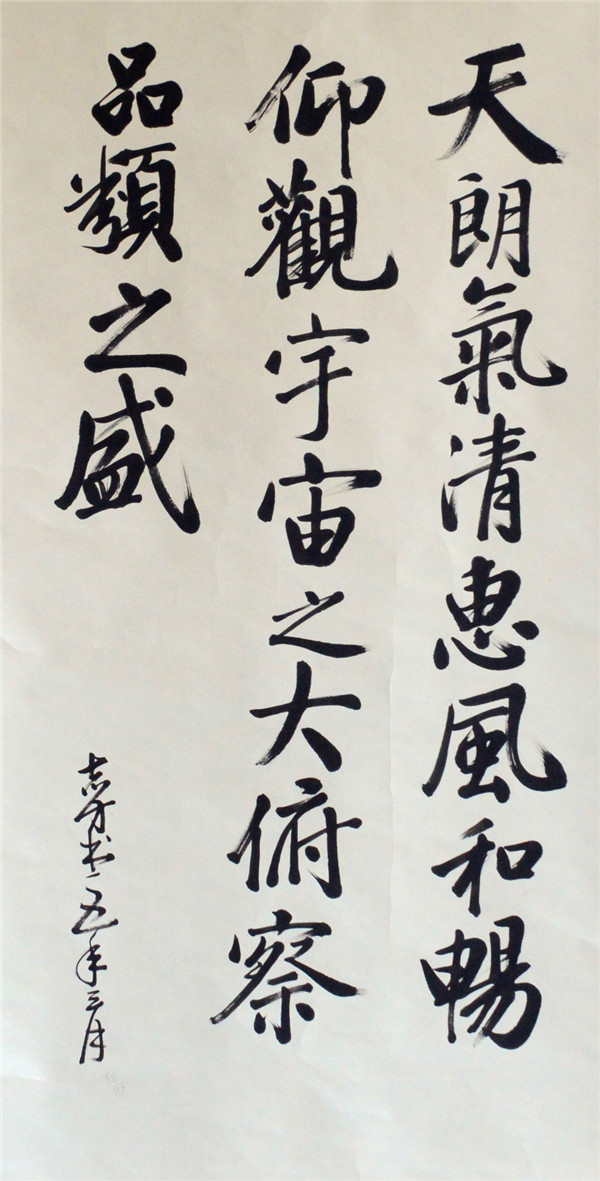 天朗氣清惠風和暢
仰觀宇宙之大俯察
品類之盛
志方书二〇一五年三月